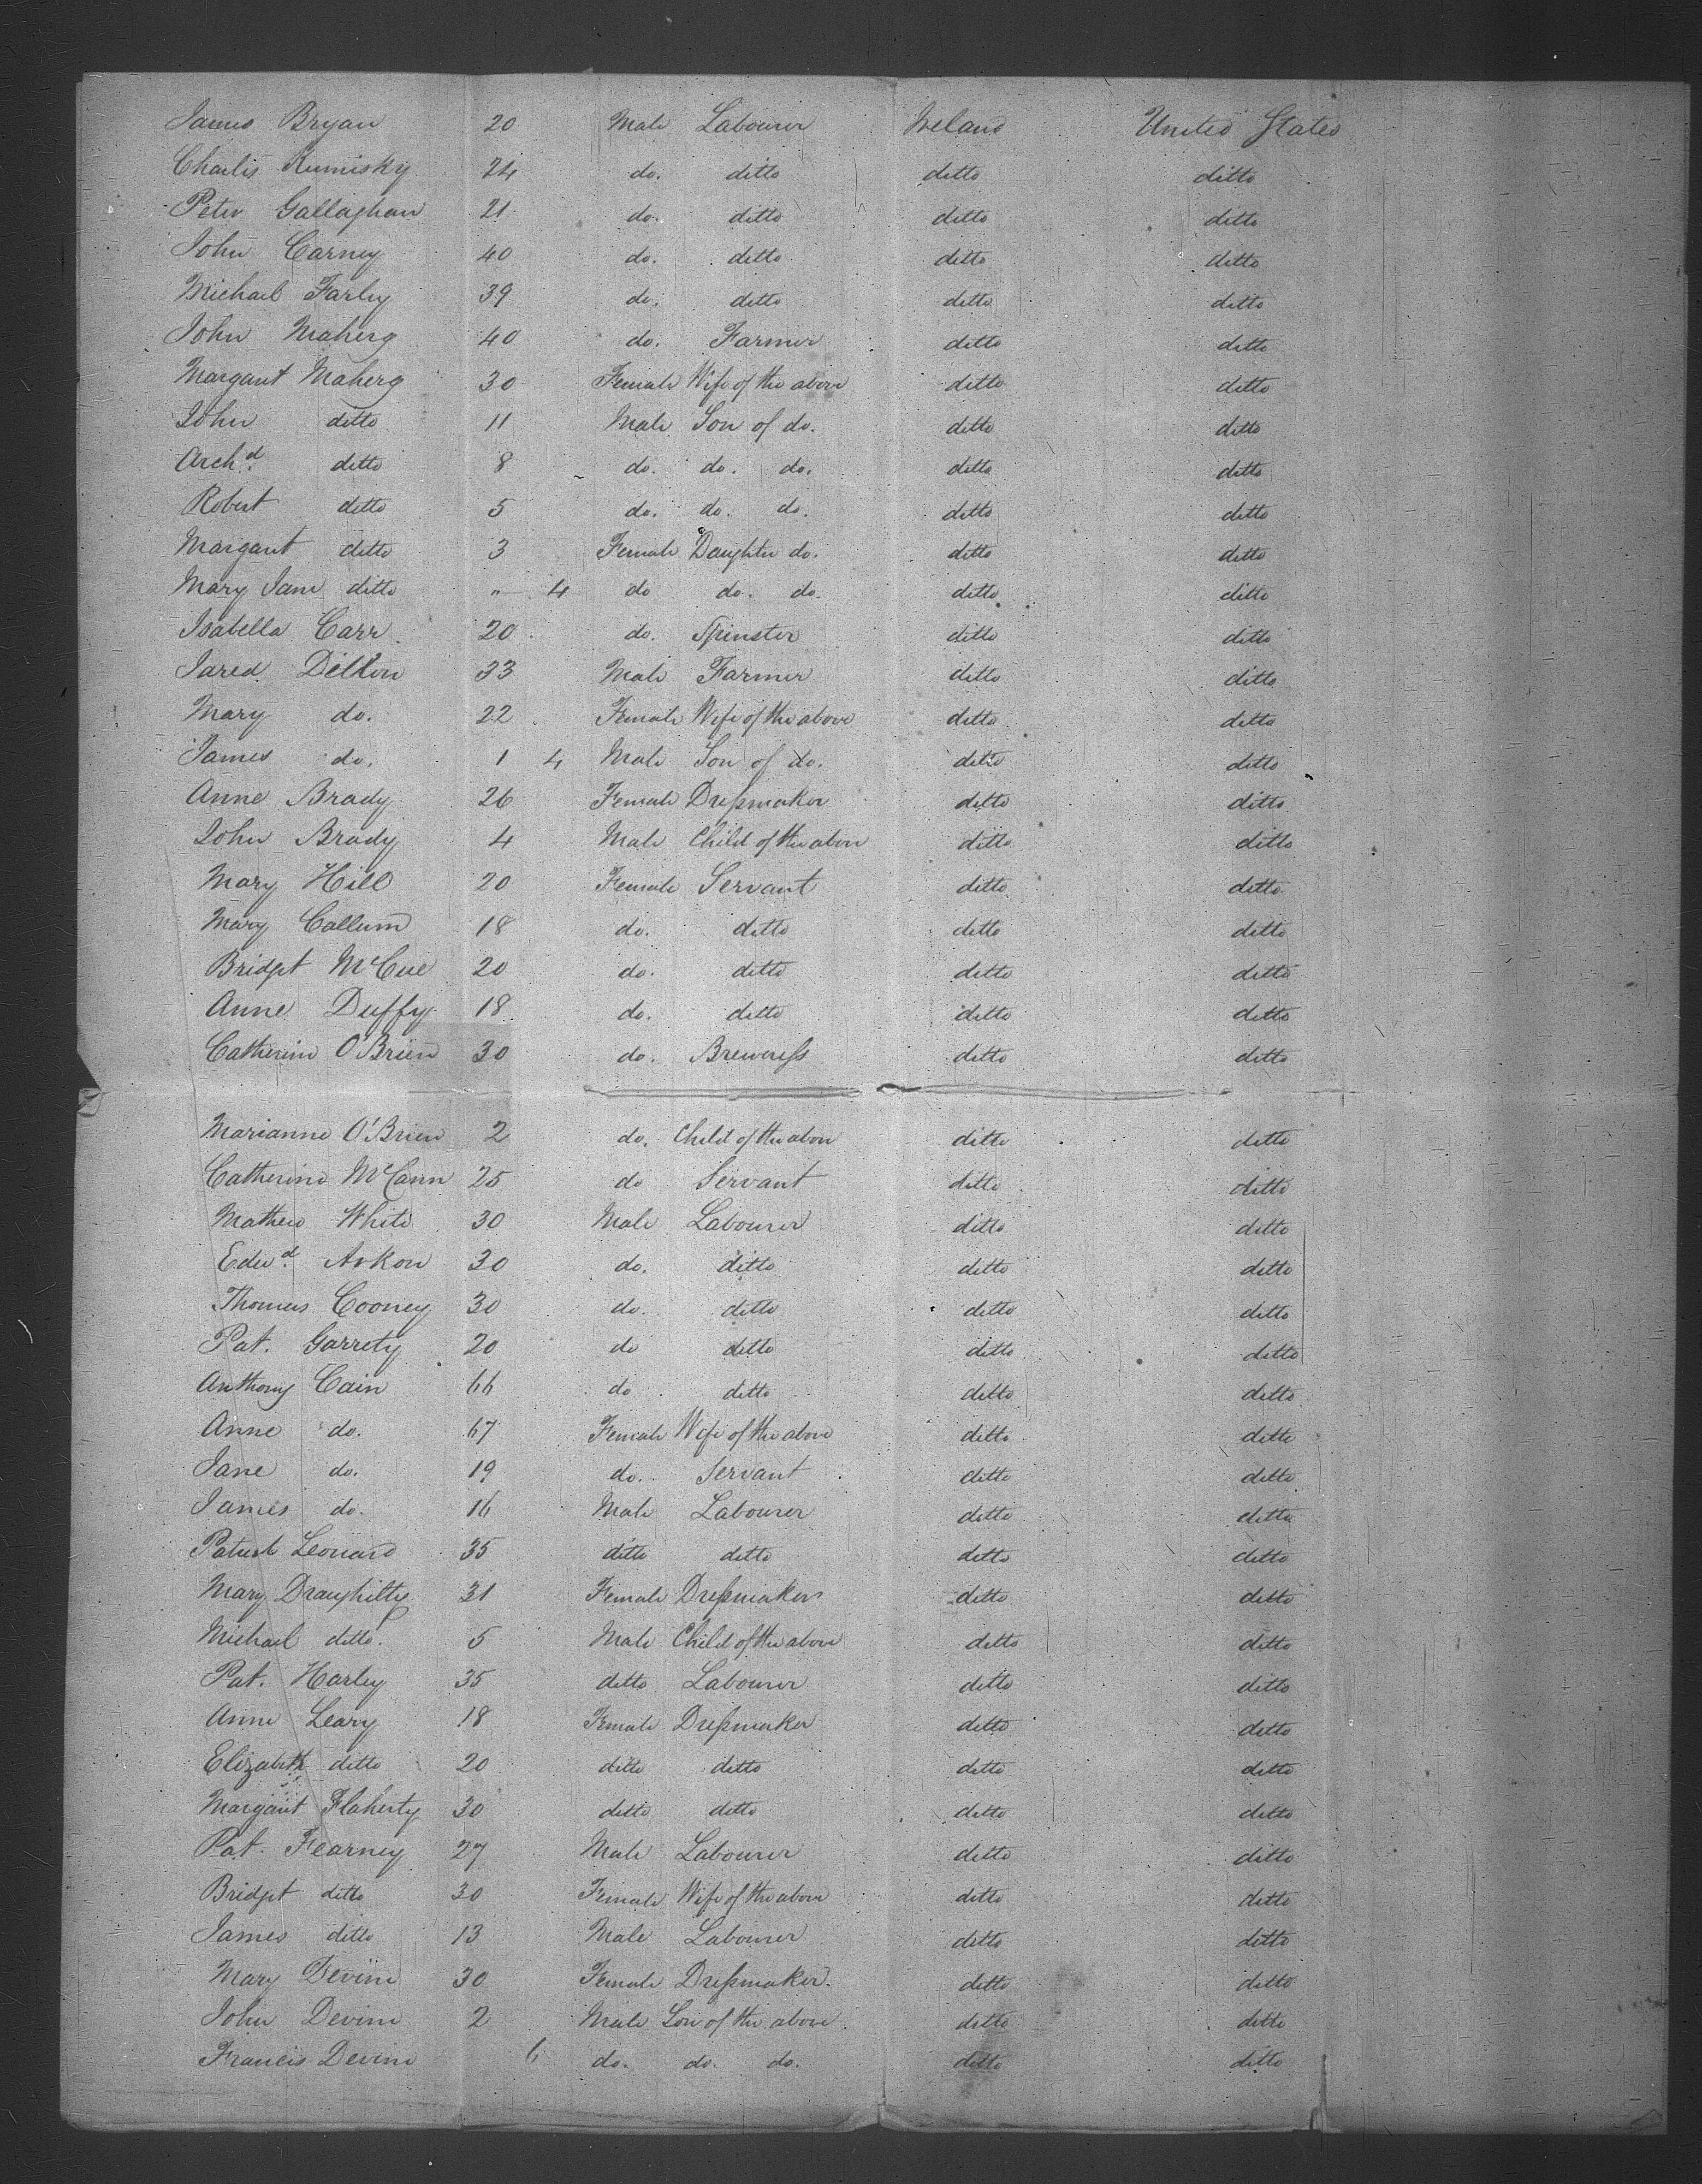 James Bryan 20 Male Labourer Ireland United States
Charles Kumisky 24 do. ditto ditto ditto
Peter Gallaghan 21 do. ditto ditto ditto
John Carney 40 do. ditto ditto ditto
Michael Farley 39 do. ditto ditto ditto
John Maherg 40 do. Farmer ditto ditto
Margaret Maherg 30 Female Wife of the above ditto ditto
John ditto 11 Male Son of do. ditto ditto
Archd. ditto 8 do. do. do. ditto ditto
Robert ditto 5 do. do. do. ditto ditto
Margaret ditto 3 Female Daughter do. ditto ditto
Mary Jane ditto " 4 do do. do. ditto ditto
Isabella Carr 20 do. Spinster ditto ditto
Jared Dillon 33 Male Farmer ditto ditto
Mary do. 22 Female Wife of the above ditto ditto
James do. 1 4 Male Son of do. ditto ditto
Anne Brady 26 Female Dressmaker ditto ditto
John Brady 4 Male Child of the above ditto ditto
Mary Hill 20 Female Servant ditto ditto
Mary Callum 18 do. ditto ditto ditto
Bridget McCue 20 do. ditto ditto ditto
Anne Duffy 18 do. ditto ditto ditto
Catherine O'Brien 30 do. Breweress ditto ditto
Marianne O'Brien 2 do. Child of the above ditto ditto
Catherine McCann 25 do Servant ditto ditto
Mathew White 30 Male Labourer ditto ditto
Edwd. 30 do. ditto ditto ditto
Thomas Cooney 30 do. ditto ditto ditto
Pat. Garrety 20 do ditto ditto ditto
Anthony Cain 66 do ditto ditto ditto
Anne do. 67 Female Wife of the above ditto ditto
Jane do. 19 do. Servant ditto ditto
James do. 16 Male Labourer ditto ditto
Patrick Leonard 35 ditto ditto ditto ditto
Mary Draughilty 31 Female Dressmaker ditto ditto
Michael ditto. 5 Male Child of the above ditto ditto
Pat. Harley 35 ditto Labourer ditto ditto
Anne Leary 18 Female Dressmaker ditto ditto
Elizabeth ditto 20 ditto ditto ditto ditto
Margaret Flaherty 30 ditto ditto ditto ditto
Pat. Fearney 27 Male Labourer ditto ditto
Bridget ditto 30 Female Wife of the above ditto ditto
James ditto 13 Male Labourer ditto ditto
Mary Devine 30 Female Dressmaker. ditto ditto
John Devine 2 Male Son of the above. ditto ditto
Francis Devine 6 do. do. do. ditto ditto